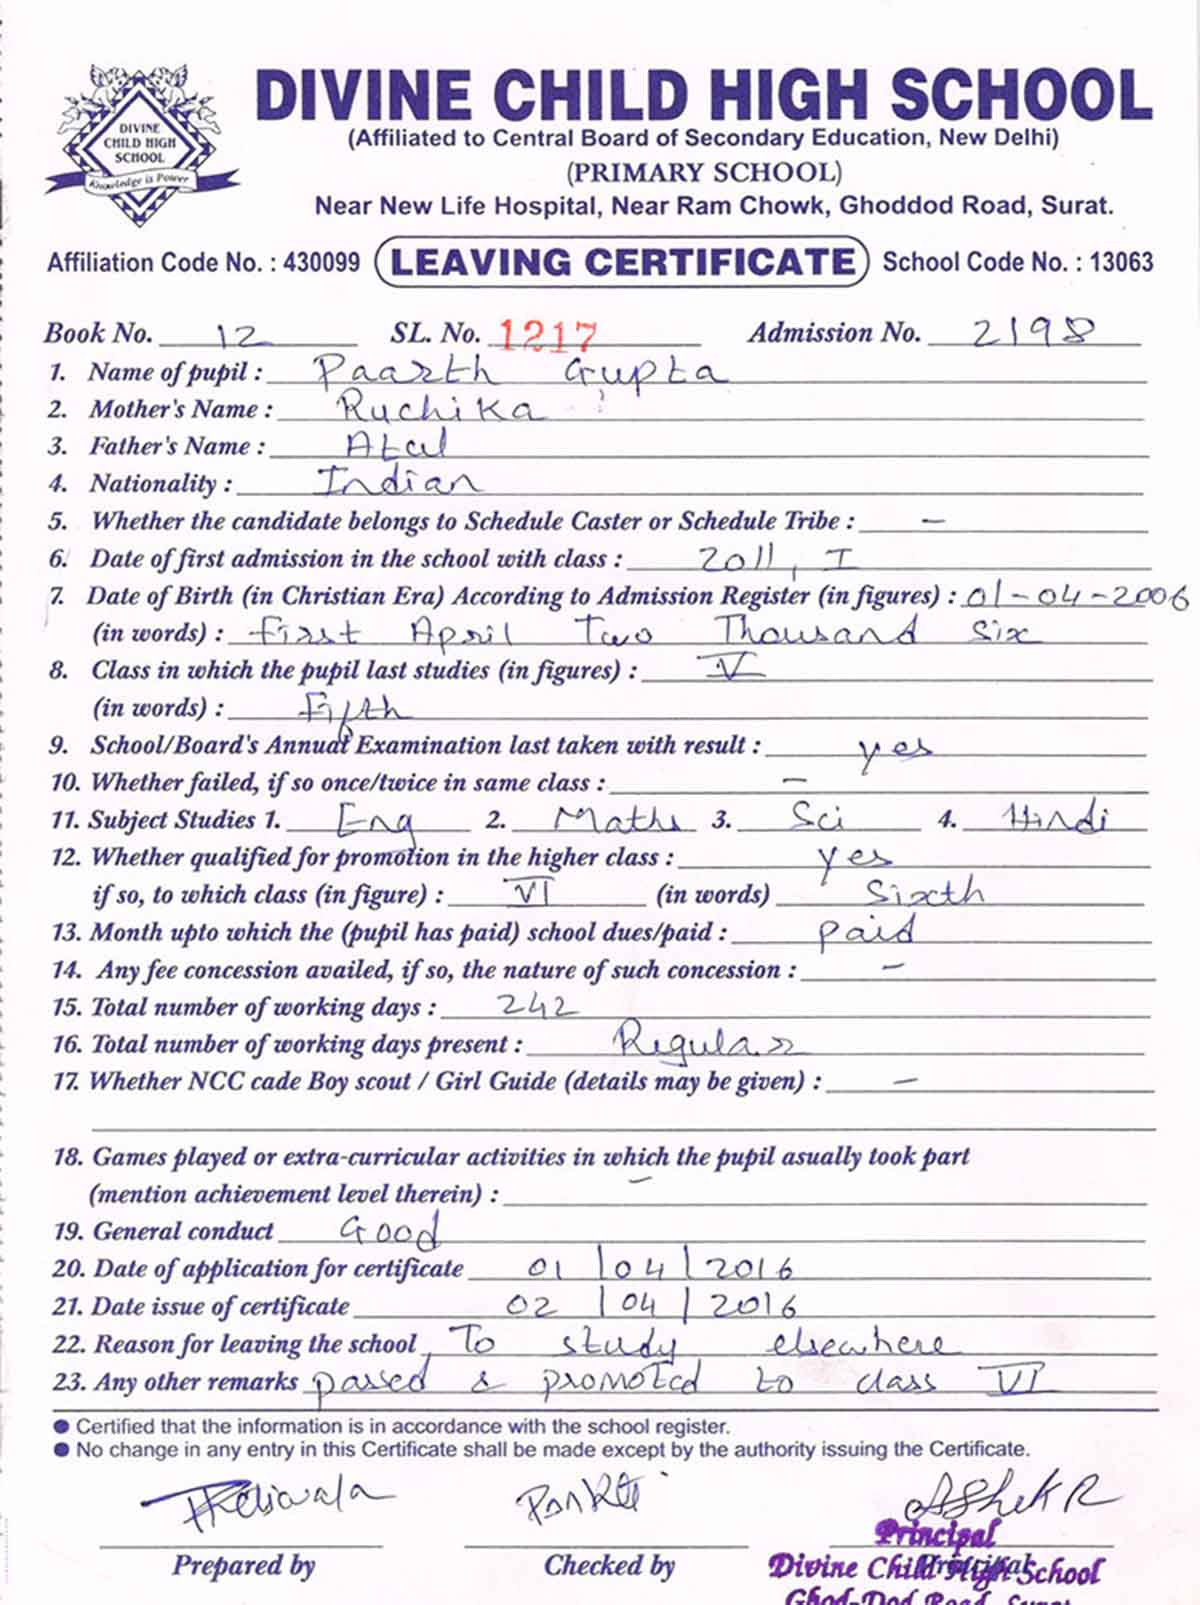 DIVINE
CHILD HIGH
SCHOOL
Knowledge is Power
DIVINE CHILD HIGH SCHOOL
(Affiliated to Central Board of Secondary Education, New Delhi)
(PRIMARY SCHOOL)
Near New Life Hospital, Near Ram Chowk, Ghoddod Road, Surat.
Affiliation Code No. : 430099 LEAVING CERTIFICATE School Code No. : 13063
Book No. 12 SL. No. 1217 Admission No. 2198
1. Name of pupil : Paarth Gupta
2. Mother's Name : Ruchika
3. Father's Name : Atul
4. Nationality : Indian
5. Whether the candidate belongs to Schedule Caster or Schedule Tribe : –
6. Date of first admission in the school with class : 2011, I
7. Date of Birth (in Christian Era) According to Admission Register (in figures) : 01-04-2006
(in words) : First April Two Thousand Six
8. Class in which the pupil last studies (in figures) : V
(in words) : Fifth
9. School/Board's Annual Examination last taken with result : yes
10. Whether failed, if so once/twice in same class : –
11. Subject Studies 1. Eng 2. Maths 3. Sci 4. Hindi
12. Whether qualified for promotion in the higher class : yes
if so, to which class (in figure) : VI (in words) Sixth
13. Month upto which the (pupil has paid) school dues/paid : paid
14. Any fee concession availed, if so, the nature of such concession : –
15. Total number of working days : 242
16. Total number of working days present : Regular
17. Whether NCC cade Boy scout / Girl Guide (details may be given) : –
18. Games played or extra-curricular activities in which the pupil asually took part
(mention achievement level therein) : –
19. General conduct Good
20. Date of application for certificate 01/04/2016
21. Date issue of certificate 02/04/2016
22. Reason for leaving the school To study elsewhere
23. Any other remarks passed & promoted to class VI
● Certified that the information is in accordance with the school register.
● No change in any entry in this Certificate shall be made except by the authority issuing the Certificate.
Principal
Prepared by Checked by Principal
Divine Child High School
Ghod-Dod Road, Surat